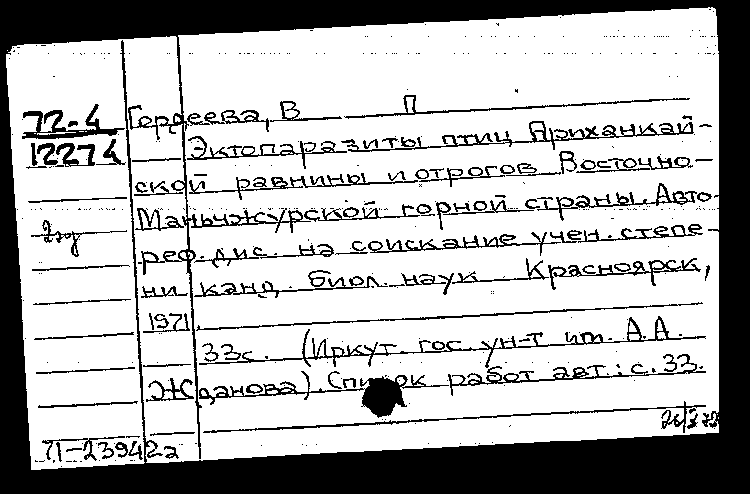 72-4
12274
Гордеева, В П
Эктопаразиты птиц Приханкай-
ской равнины и отрогов Восточно-
Маньчжурской горной страны. Авто-
реф. дис. на соискание учен. степе-
ни канд. биол. наук Красноярск,
1971.
33с. (Иркут. гос. ун-т им. А.А.
Жданова). Список работ авт.: с. 33.
71-23942а